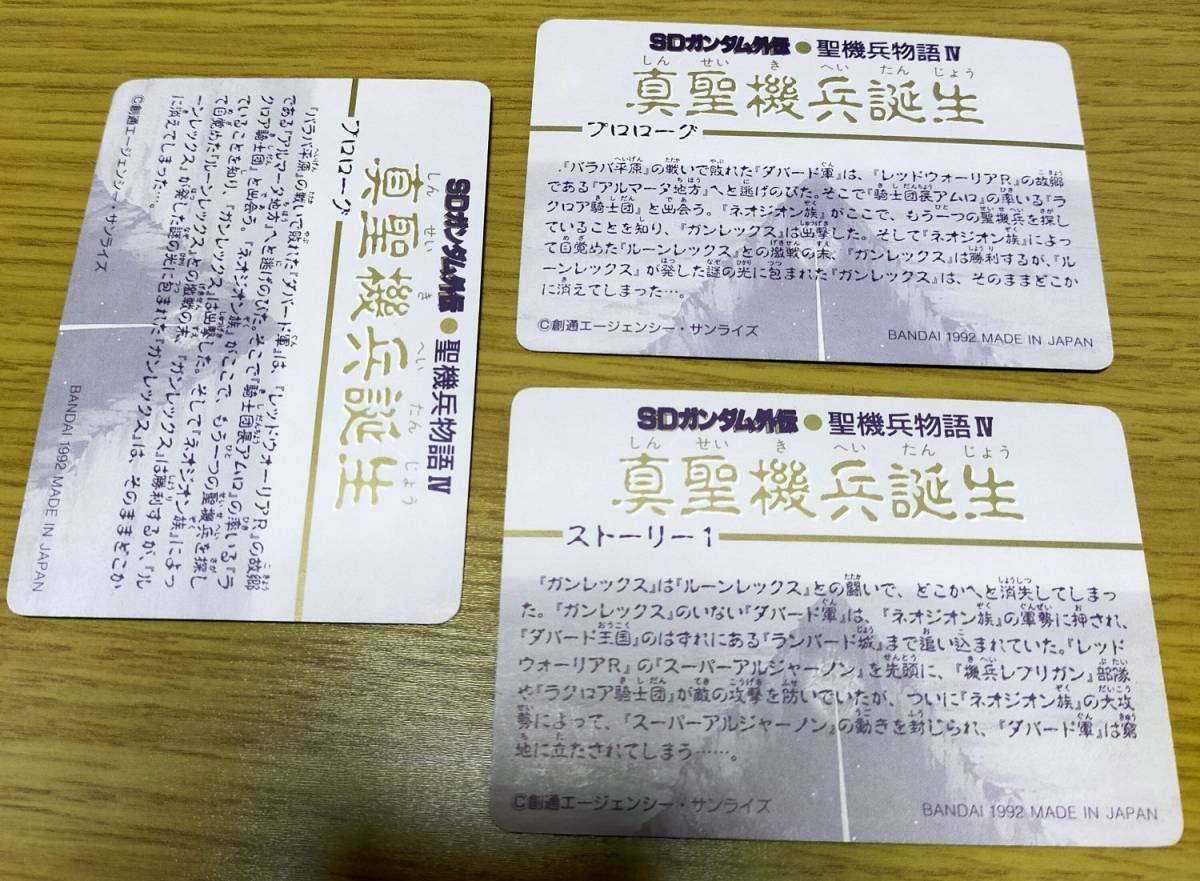 SDガンダム外伝●聖機兵物語Ⅳ
しん せい き へい たん じょう
真聖機兵誕生
プロローグ
『バラバ平原』の戦いで敗れた『ダバード軍』は、『レッドウォーリアR』の故郷
である『アルマータ地方』へと逃げのびた。そこで『騎士団長アムロ』の率いる『ラ
クロア騎士団』と出会う。『ネオジオン族』がここで、もう一つの聖機兵を探し
ていることを知り、『ガンレックス』は出撃した。そして『ネオジオン族』によっ
て目覚めた『ルーンレックス』との激戦の末、『ガンレックス』は勝利するが、『ル
ーンレックス』が発した謎の光に包まれた『ガンレックス』は、そのままどこか
に消えてしまった…。
©創通エージェンシー・サンライズ
BANDAI 1992 MADE IN JAPAN
SDガンダム外伝●聖機兵物語Ⅳ
しん せい き へい たん じょう
真聖機兵誕生
プロローグ
『バラバ平原』の戦いで敗れた『ダバード軍』は、『レッドウォーリアR』の故郷
である『アルマータ地方』へと逃げのびた。そこで『騎士団長アムロ』の率いる『ラ
クロア騎士団』と出会う。『ネオジオン族』がここで、もう一つの聖機兵を探し
ていることを知り、『ガンレックス』は出撃した。そして『ネオジオン族』によっ
て目覚めた『ルーンレックス』との激戦の末、『ガンレックス』は勝利するが、『ル
ーンレックス』が発した謎の光に包まれた『ガンレックス』は、そのままどこか
に消えてしまった…。
©創通エージェンシー・サンライズ
BANDAI 1992 MADE IN JAPAN
SDガンダム外伝●聖機兵物語Ⅳ
しん せい き へい たん じょう
真聖機兵誕生
ストーリー1
『ガンレックス』は『ルーンレックス』との闘いで、どこかへと消失してしまっ
た。『ガンレックス』のいない『ダバード軍』は、『ネオジオン族』の軍勢に押され、
『ダバード王国』のはずれにある『ランバード城』まで追い込まれていた。『レッド
ウォーリアR』の『スーパーアルジャーノン』を先頭に、『機兵レプリガン』部隊
や『ラクロア騎士団』が敵の攻撃を防いでいたが、ついに『ネオジオン族』の大攻
勢によって、『スーパーアルジャーノン』の動きを封じられ、『ダバード軍』は窮
地に立たされてしまう……。
©創通エージェンシー・サンライズ
BANDAI 1992 MADE IN JAPAN